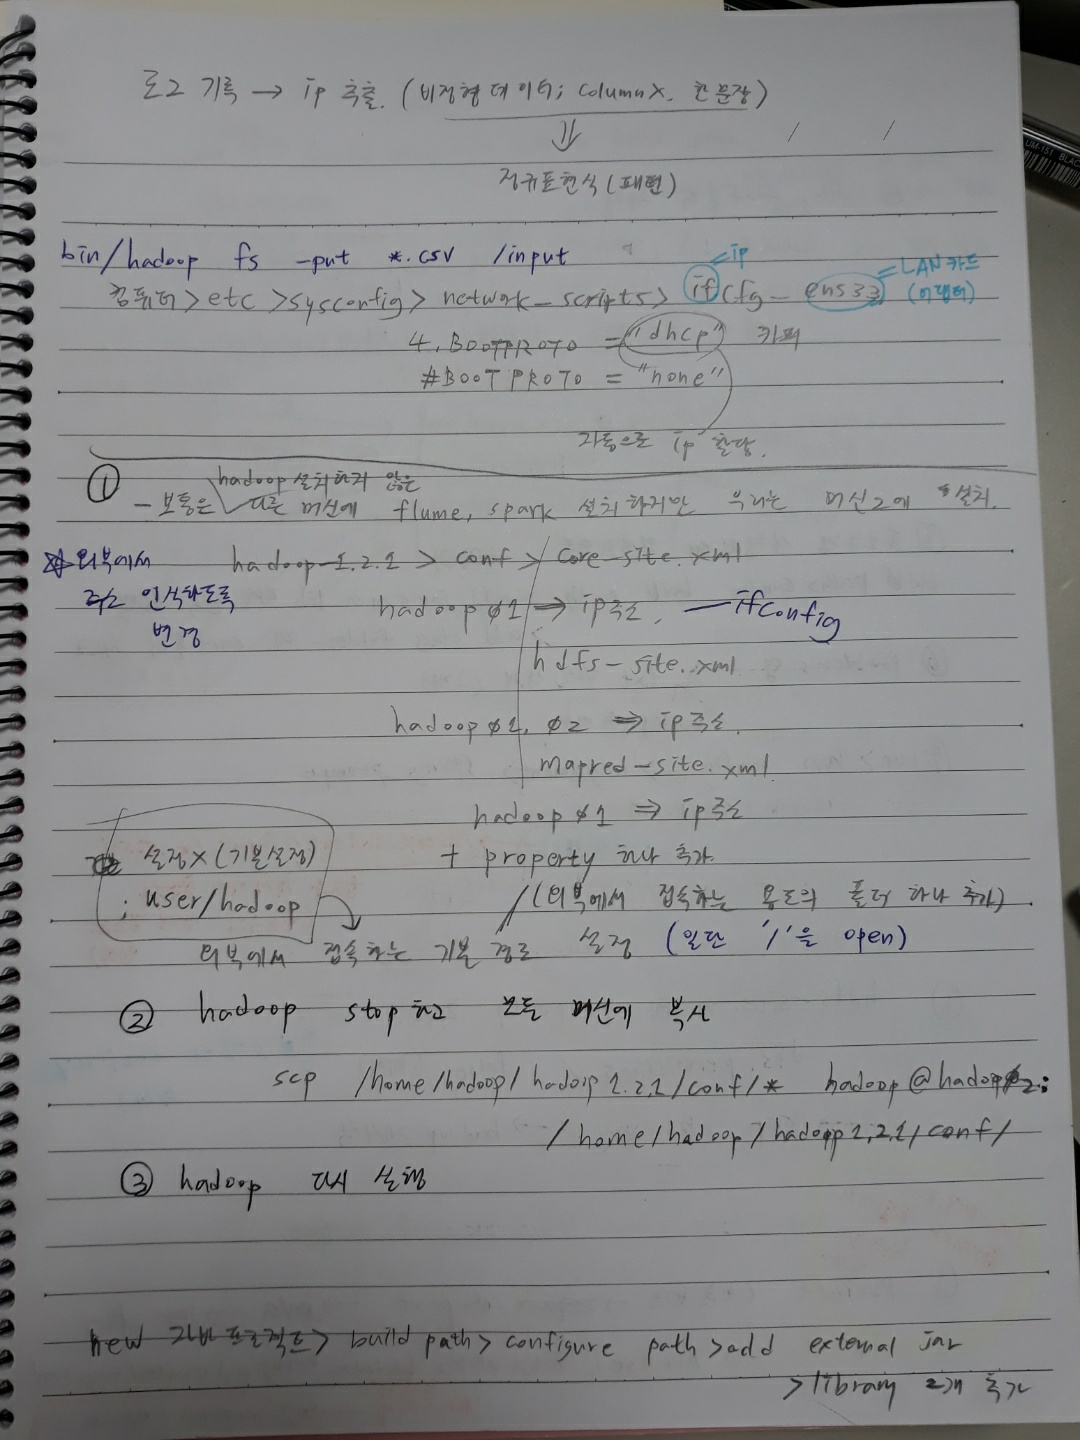 로그 기록 → ip 추출. (비정형 데이터; column X. 한 문장)
⇓
정규표현식 (패턴)
bin/hadoop fs -put *.csv /input
= ip
= LAN카드
컴퓨터 > etc > sysconfig > network-scripts > ifcfg-ens33
(어댑터)
4. BOOTPROTO = "dhcp" 카피
#BOOTPROTO = "none"
자동으로 ip 할당.
①
hadoop 설치하지 않은
- 보통은 다른 머신에 flume, spark 설치하지만 우리는 머신2에 설치.
☆ 외부에서 hadoop-1.2.1 > conf > core-site.xml
주소 인식하도록
hadoop01 ⇒ ip주소. — ifconfig
변경
hdfs-site.xml
hadoop01, 02 ⇒ ip주소.
mapred-site.xml
hadoop01 ⇒ ip주소
설정X (기본설정)
+ property 하나 추가.
; user/hadoop
/(외부에서 접속하는 용도의 폴더 하나 추가)
외부에서 접속하는 기본 경로 설정 (일단 '/'을 open)
② hadoop stop하고 모든 머신에 복사
scp /home/hadoop/hadoop1.2.1/conf/* hadoop@hadoop02:
/home/hadoop/hadoop1.2.1/conf/
③ hadoop 다시 실행
new 자바프로젝트 > build path > configure path > add external jar
> library 2개 추가
UM-151 BLAC